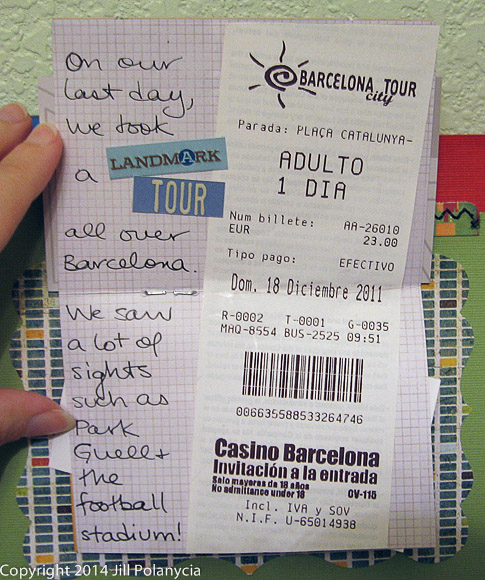 On our
last day,
we took
a LANDMARK
TOUR
all over
Barcelona.
We saw
a lot of
sights
such as
Park
Guell +
the
football
stadium!
BARCELONA TOUR
city
Parada: PLAÇA CATALUNYA-
ADULTO
1 DIA
Num billete: AA-26010
EUR 23.00
Tipo pago: EFECTIVO
Dom. 18 Diciembre 2011
R-0002 T-0001 G-0035
MAQ-8554 BUS-2525 09:51
006635588533264746
Casino Barcelona
Invitación a la entrada
Solo mayores de 18 años
No admittance under 18 OV-115
Incl. IVA y SOV
N.I.F. U-65014938
Copyright 2014 Jill Polanycia